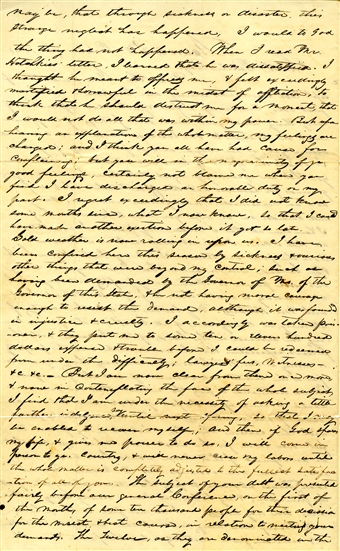 may be, that through sickness or disaster, this
strange neglect has happened, I would to God
the thing had not happened. When I read Mr
Hotchkiss' letter, I learned that he was dissatisfied. I
thought he meant to oppress me, & felt exceedingly
mortified & sorrowful in the midst of affliction, to
think that he should distrust me for a moment, that
I would not do all that was within my power. But upon
having an explanation of the whole matter, my feelings are
changed; and I think you all have had cause for
complaining; but you will in the magnanimity of your
good feelings certainly not blame me when you
find I have discharged an honorable duty on my
part. I regret exceedingly that I did not know
some months since, what I now know, so that I could
have made another exertion before it got so late.
Cold weather is now rolling in upon us. I have
been confined here this season by sickness & various
other things that were beyond my control; such as
having been demanded by the Governor of Mo. of the
Governor of this State, & he not having moral courage
enough to resist the demand, although it was founded
in injustice & cruelty. I accordingly was taken pris-
oner, & they put me to some ten or eleven hundred
dollars expense & trouble before I could be redeemed
from under the difficulty, lawyers' fees, witnesses
&c &c. But I am now clear from them once more,
& now in contemplating the face of the whole subject,
I find that I am under the necessity of asking a little
farther indulgence, until next spring, so that I may
be enabled to recover myself, And then if God spares
my life, & gives me power to do so, I will come in
person to your country, & will never cease my labors until
the whole matter is completely adjusted to the fullest satisfac
tion of all of you. The subject of your debt was presented
fairly before our general Conference, on the first of
the month, of some ten thousand people for their decision
for the wisest & best course, in relation to meeting your
demands. The Twelve, as they are denominated in the